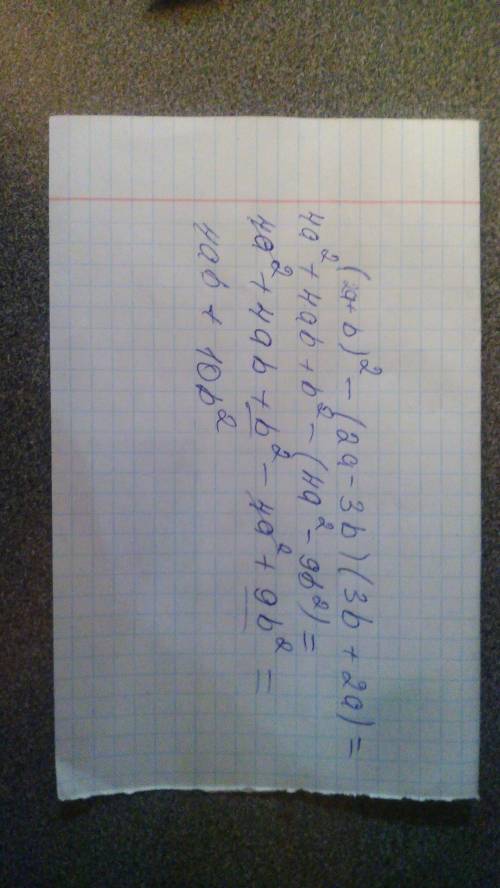 (2a+b)² - (2a-3b)(3b+2a)=
4a²+4ab+b²-(4a²-9b²)=
4a²+4ab+b²-4a²+9b²=
4ab+10b²